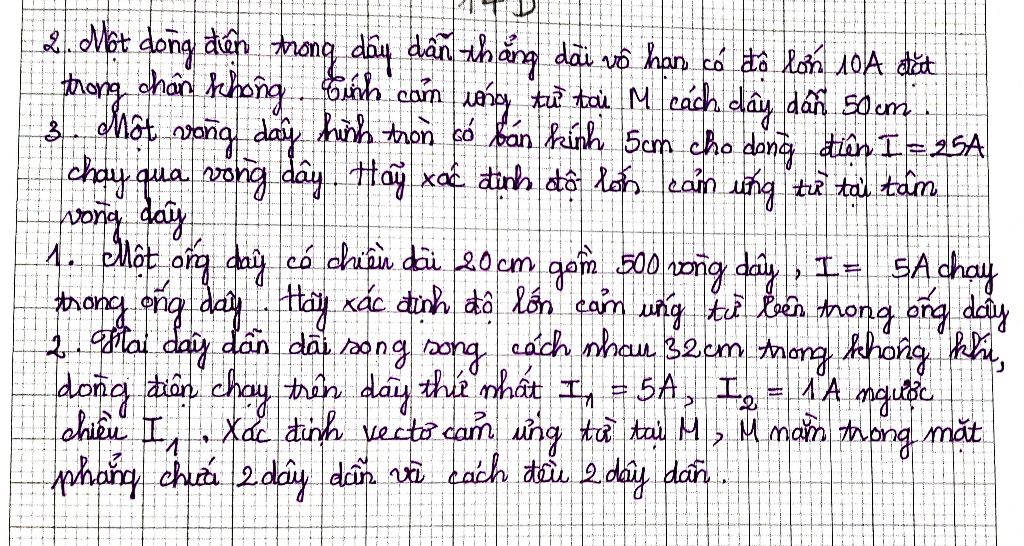 2. Một dòng điện trong dây dẫn thẳng dài vô hạn có độ lớn 10A đặt
trong chân không. Tính cảm ứng từ tại M cách dây dẫn 50cm.
3. Một vòng dây hình tròn có bán kính 5cm cho dòng điện I = 25A
chạy qua vòng dây. Hãy xác định độ lớn cảm ứng từ tại tâm
vòng dây
1. Một ống dây có chiều dài 20cm gồm 500 vòng dây, I = 5A chạy
trong ống dây. Hãy xác định độ lớn cảm ứng từ bên trong ống dây
2. Hai dây dẫn dài song song cách nhau 32cm trong không khí,
dòng điện chạy trên dây thứ nhất I₁ = 5A, I₂ = 1A ngược
chiều I₁. Xác định vectơ cảm ứng từ tại M, M nằm trong mặt
phẳng chứa 2 dây dẫn và cách đều 2 dây dẫn.